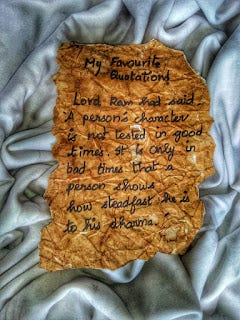 My Favourite
Quotation!
Lord Ram had said_
'A person's character
is not tested in good
times. It is only in
bad times that a
person shows
how steadfast he is
to his dharma.'